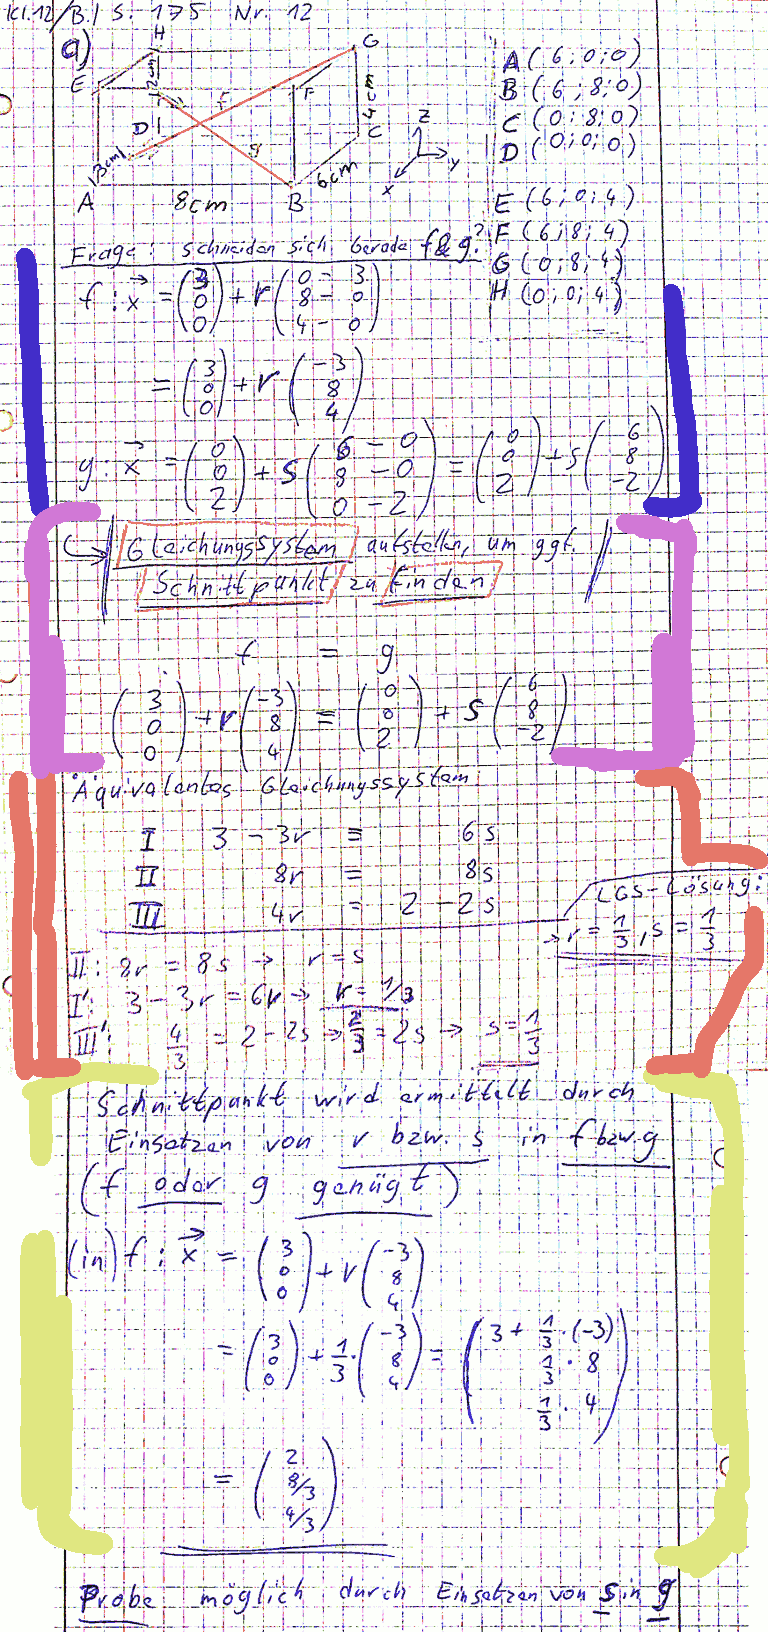 Kl.12/B.1 S. 175 Nr. 12
a)
H
G
E
2cm
F
f
D
g
4cm
C
3cm
6cm
A
8cm
B
z
y
x
A (6;0;0)
B (6;8;0)
C (0;8;0)
D (0;0;0)
E (6;0;4)
F (6;8;4)
G (0;8;4)
H (0;0;4)
Frage: Schneiden sich Gerade f & g?
f: x⃗ = (3 0 0) + r (0 - 3 8 - 0 4 - 0)
= (3 0 0) + r (-3 8 4)
g: x⃗ = (0 0 2) + s (6 - 0 8 - 0 0 - 2) = (0 0 2) + s (6 8 -2)
↳ Gleichungssystem aufstellen, um ggf.
Schnittpunkt zu finden
f = g
(3 0 0) + r (-3 8 4) = (0 0 2) + s (6 8 -2)
Äquivalentes Gleichungssystem
I 3 - 3r = 6s
II 8r = 8s
III 4r = 2 - 2s
LGS-Lösung:
→ r = 1/3, s = 1/3
II: 8r = 8s → r = s
I': 3 - 3r = 6r → r = 1/3
III': 4/3 = 2 - 2s → 2/3 = 2s → s = 1/3
Schnittpunkt wird ermittelt durch
Einsetzen von r bzw. s in f bzw g
(f oder g genügt)
(in) f: x⃗ = (3 0 0) + r (-3 8 4)
= (3 0 0) + 1/3 · (-3 8 4) = (3 + 1/3 · (-3) 1/3 · 8 1/3 · 4)
= (2 8/3 4/3)
Probe möglich durch Einsetzen von s in g